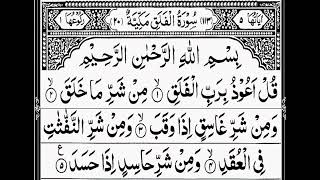 اٰیاتها ۵ (۱۱۳) سُوْرَةُ الْفَلَقِ مَكِّیَّةٌ (۲۰) رکوعها ۱
بِسْمِ اللّٰهِ الرَّحْمٰنِ الرَّحِیْمِ
قُلْ اَعُوْذُ بِرَبِّ الْفَلَقِ ۱ مِنْ شَرِّ مَا خَلَقَ ۲
وَمِنْ شَرِّ غَاسِقٍ اِذَا وَقَبَ ۳ وَمِنْ شَرِّ النَّفّٰثٰتِ
فِی الْعُقَدِ ۴ وَمِنْ شَرِّ حَاسِدٍ اِذَا حَسَدَ ۵ ع